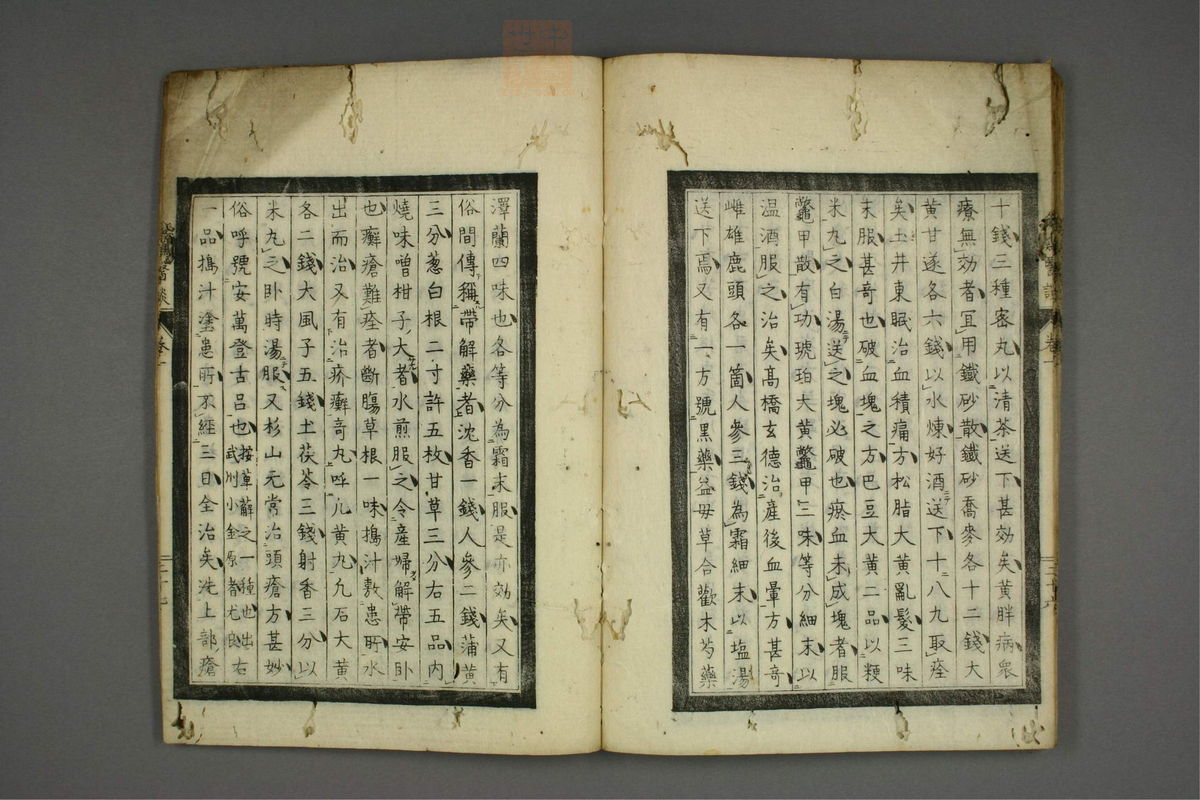 十錢三種密丸以清茶送下甚効矣黄胖病衆
療無効者冝用鐵砂散鐵砂喬麥各十二錢大
黄甘遂各六錢以水煉好酒送下十八九取痊
矣土井東眠治血積痛方松脂大黄亂髮三味
末服甚奇也破血塊之方巴豆大黄二品以粳
米丸之白湯送之塊必破也瘀血未成塊者服
鼈甲散有功琥珀大黄鼈甲三味等分細末以
温酒服之治矣髙橋玄德治產後血暈方甚奇
雌雄鹿頭各一箇人參三錢為霜細末以塩湯
送下焉又有一方號黑藥益母草合歡木芍藥
澤蘭四味也各等分為霜末服是亦効矣又有
俗間傳稱帶解藥者沈香一錢人參二錢蒲黄
三分葱白根二寸許五枚甘草三分右五品内
燒味噌柑子大者水煎服之令產婦解帶安卧
也癬瘡難痊者斷膓草根一味搗汁敷患所水
出而治又有治疥癬奇丸呼几黄丸凢石大黄
各二錢大風子五錢土茯苓三錢射香三分以
米丸之卧時湯服又杉山元常治頭瘡方甚妙
俗呼號安萬登古呂也按萆薢之一種也出武州小金原者尤良右
一品搗汁塗患所不經三日全治矣洗上部瘡